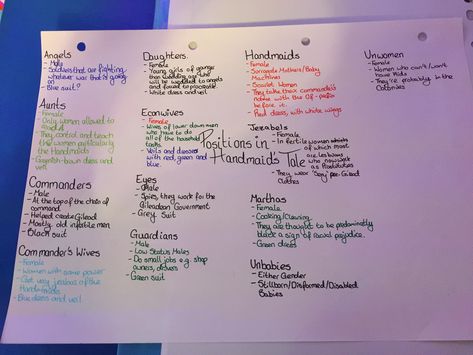 Angels
- Male
- Soldiers that are fighting
whatever war that's going
on
- Blue suit?
Aunts
- Female
- Only women allowed to
read
- They control and teach
the women particularly
the Handmaids
- Greenish-brown dress and
veil
Commanders
- Male
- At the top of the chain of
command
- Helped create Gilead
- Mostly old infertile men
- Black suit
Commander's Wives
- Female
- Women with some power
- Get very jealous of the
Handmaids
- Blue dress and veil
Daughters
- Female
- Young girls of younger
than wedding age who will
be wedded to angels
and forced to procreate
- White dress and veil
Econwives
- Female
- Wives of lower down men
who have to do
all of the household
tasks
- Veils and dresses
with red, green and
blue
Eyes
- Male
- Spies, they work for the
Gileadean Government
- Grey suit
Guardians
- Male
- Low Status Males
- Do small jobs e.g. shop
owners, drivers
- Green suit
Positions in
Handmaid's Tale
Handmaids
- Female
- Surrogate Mothers/Baby
Machines
- Scarlet Women
- They take their commanders
name with the Of- prefix
before it.
- Red dress, with white wings
Jezebels
- Female
- Infertile women
of which most
are lesbians
who now work
as Prostitutes
- They wear 'Gay' pre-Gilead
clothes
Marthas
- Female
- Cooking/Cleaning
- They are thought to be predominatly
black a sign of racial prejudice.
- Green dress
Unbabies
- Either Gender
- Stillborn/Disformed/Disabled
Babies
Unwomen
- Female
- Women who can't/wont
have kids
- They're probably in the
Colonies